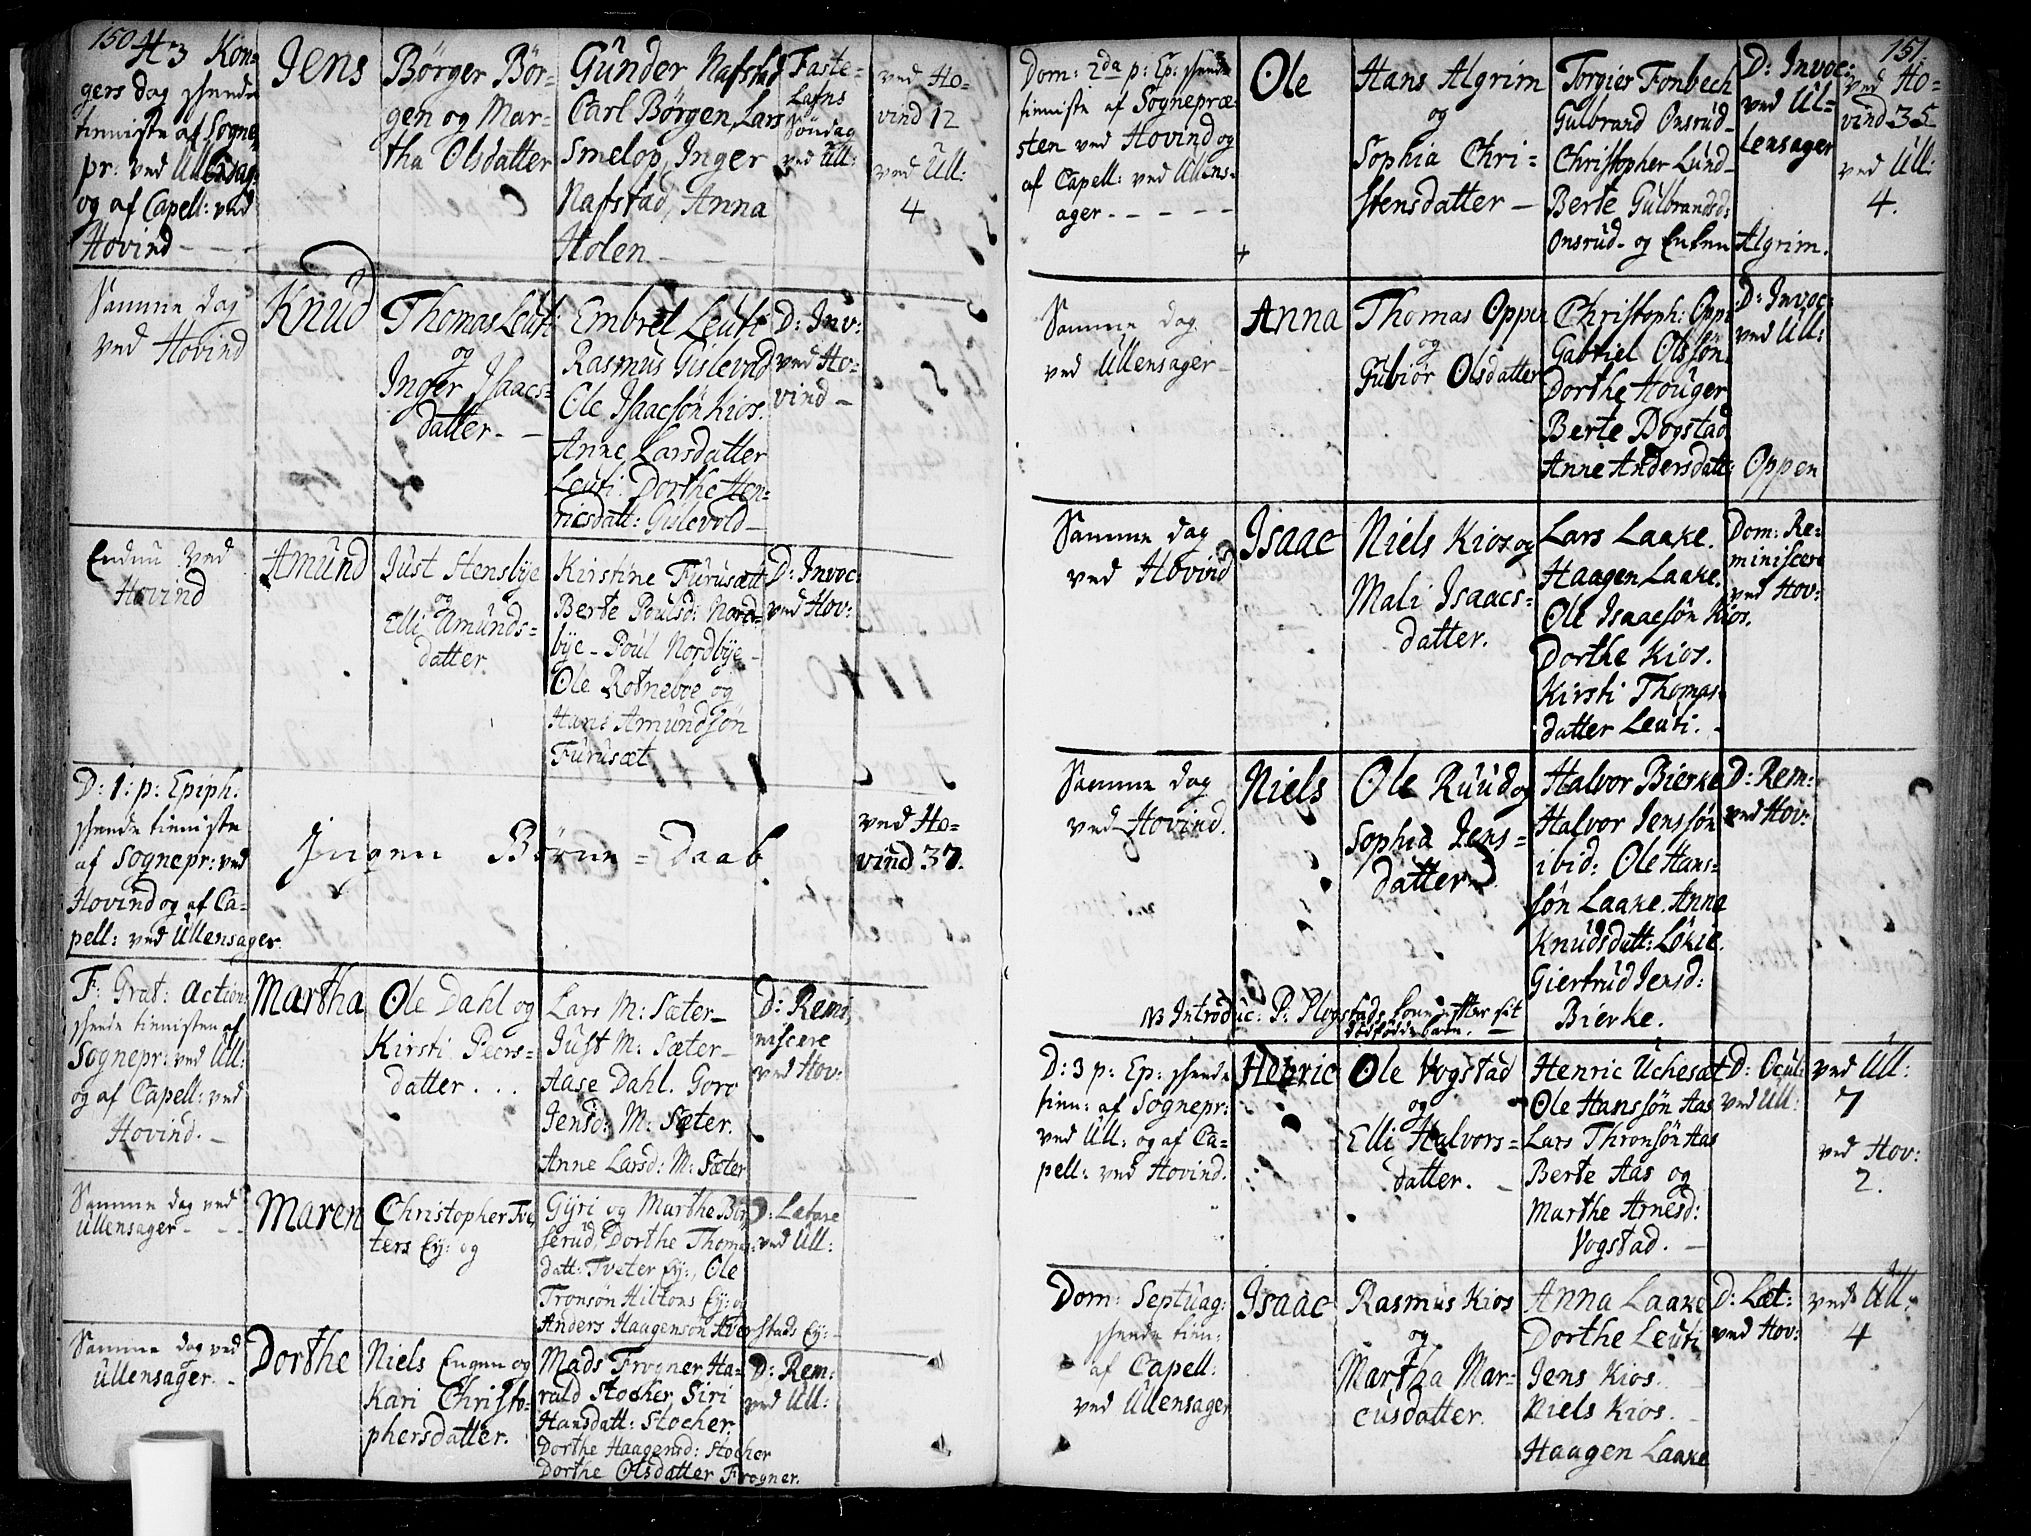 150
H 3 Kon=
gers dag skeede
tienniste af Sogne
pr: ved Ullensag:
og af Capell: ved
Hovind
Jens
Börger Bör=
gen og Mar=
tha Olsdatter
Gunder Nafstad
Carl Börgen, Lars
Smelop, Inger
Nafstad, Anna
Holen
Faste=
Lafns
Söndag
ved Ull:
ved Ho=
vind 12
ved Ull:
4
Samme dag
ved Hovind
Knud
Thomas Leuti
og
Inger Isaacs=
datter
Embret Leuti
Rasmus Gislevold
Ole Isaacsön Kios.
Anne Larsdatter
Leuti. Dorthe Hen=
ricsdatt: Gislevold
D: Inv:
ved Ho=
vind
Endnu ved
Hovind
Amund
Just Stensbye
og
Elli Amunds=
datter
Kirstine Furusæt
Berte Poulsd: Nord=
bye - Poul Nordbye
Ole Rotneboe og
Hans Amundsön
Furusæt
D: Invoc:
ved Hov:
D: 1: p: Epiph.
skeede tienniste
af Sognepr: ved
Hovind og af Ca=
pell: ved Ullensager
Ingen Börne=Daab
ved Ho=
vind 37.
F: Grat: action:
skeede tiennisten af
Sognepr: ved Ull:
og af Capell: ved
Hovind.
Martha
Ole Dahl og
Kirsti Peers=
datter
Lars M: Sæter
Just M: Sæter
Aase Dahl. Goro
Jensd: M: Sæter.
Anne Larsd: M: Sæter
D: Remi
niscere
ved Hov:
Samme dag ved
Ullensager
Maren
Christopher Tve
ters Ey: og
Gÿri og Marthe Bör
serud, Dorthe Thomas
datt: Tveter Ey:, Ole
Tronsön Hiltons Ey: og
Anders Haagensön Aver stads Ey:
D: Lætare
ved Ull:
Samme dag ved
Ullensager
Dorthe
Niels Engen og
Kari Christo=
phersdatter.
Mads Frogner Ha=
rald Stocher, Siri
Hansdatt: Stocher.
Dorthe Haagensd: Stocher
Dorthe Olsdatter Frogner.
D: Rem:
ved Ull:
151
Dom: 2da p: Ep: skeede
tienniste af Sognepræ
sten ved Hovind og
af Capell: ved Ullens=
ager
Ole
Hans Algrim
og
Sophia Chri=
stensdatter
Torgier Fonbech
Gulbrand Onsrud
Christopher Lund
Berte Gulbrandsd:
Onsrud og Enken Algrim.
D: Invoc:
ved Ul=
lensager
ved Ho=
vind 35
ved Ull:
4.
Samme dag
ved Ullensager
Anna
Thomas Oppen
og
Gubiör Olsdatter
Christoph: Oppe
Gabriel Olssön
Dorthe Houger
Berte Dogstad
Anne Andersdatt: Oppen
D: Invoc:
ved Ull:
Samme dag
ved Hovind
Isaac
Niels Kios og
Mali Isaacs=
datter.
Lars Laake.
Haagen Laake.
Ole Isaacsön Kios.
Dorthe Kios.
Kirsti Thomas
datter Leuti.
Dom: Re=
miniscere
ved Hov:
Samme dag
ved Hovind.
Niels
Ole Ruud og
Sophia Jens=
datter
Halvor Bierke
Halvor Jenssön
ibid: Ole Hans=
sön Laake. Anna
Knudsdatt: Lökie.
Giertrud Jensd:
Bierke.
D: Rem:
ved Hov:
NB Introduc: P: Plogstads kone efter sit
dödfödde barn.
D: 3 p: Ep: skeede
tien: af Sognepr:
ved Ull: og af Ca=
pell: ved Hovind.
Henric
Ole Vogstad
og
Elli Halvors=
datter.
Henric Uchesæt
Ole Hanssön Aas
Lars Thronsön Aas
Berte Aas og
Marthe Arnesd:
Vogstad.
D: Ocul:
ved Ull:
ved Ull:
7
ved Hov:
2.
Dom: Septuag:
skeede tien:
af Capell:
ved Ullensager
Isaac
Rasmus Kios
og
Martha Mar=
cusdatter.
Anna Laake
Dorthe Leuti
Jens Kios.
Niels Kios.
Haagen Laake
D: Læt:
ved Hov:
ved Ull:
4